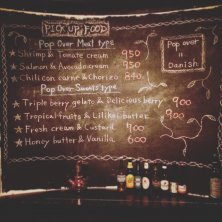 PICK UP FOOD
Pop Over Meat type
★ Shrimp & Tomato cream 950
★ Salmon & Avocado cream 950
★ Chilicon carne & Chorizo 840
Pop Over Sweets type
★ Triple berry gelato & Delicious berry 900
★ Tropical fruits & Lilikoi butter 900
★ Fresh cream & Custard 900
★ Honey butter & Vanilla 600
Pop over
is
Danish